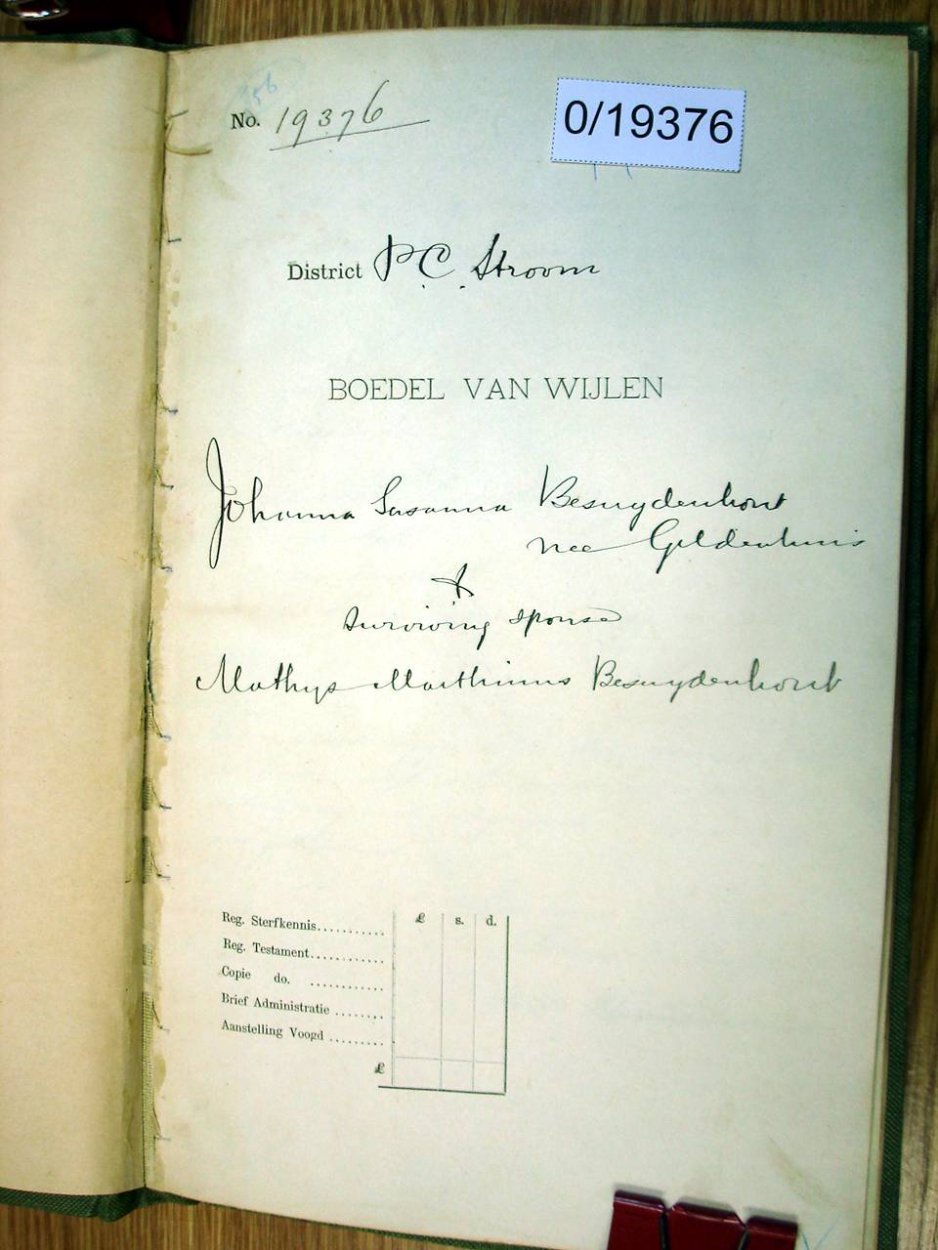 No. 19376
0/19376
District P.C. Stroom
BOEDEL VAN WIJLEN
Johanna Susanna Besuydenhout
nee Geldenhuis
&
surviving spouse
Mathys Marthinus Besuydenhout
£ s. d.
Reg. Sterfkennis...........
Reg. Testament............
Copie do. ............
Brief Administratie ........
Aanstelling Voogd .........
£